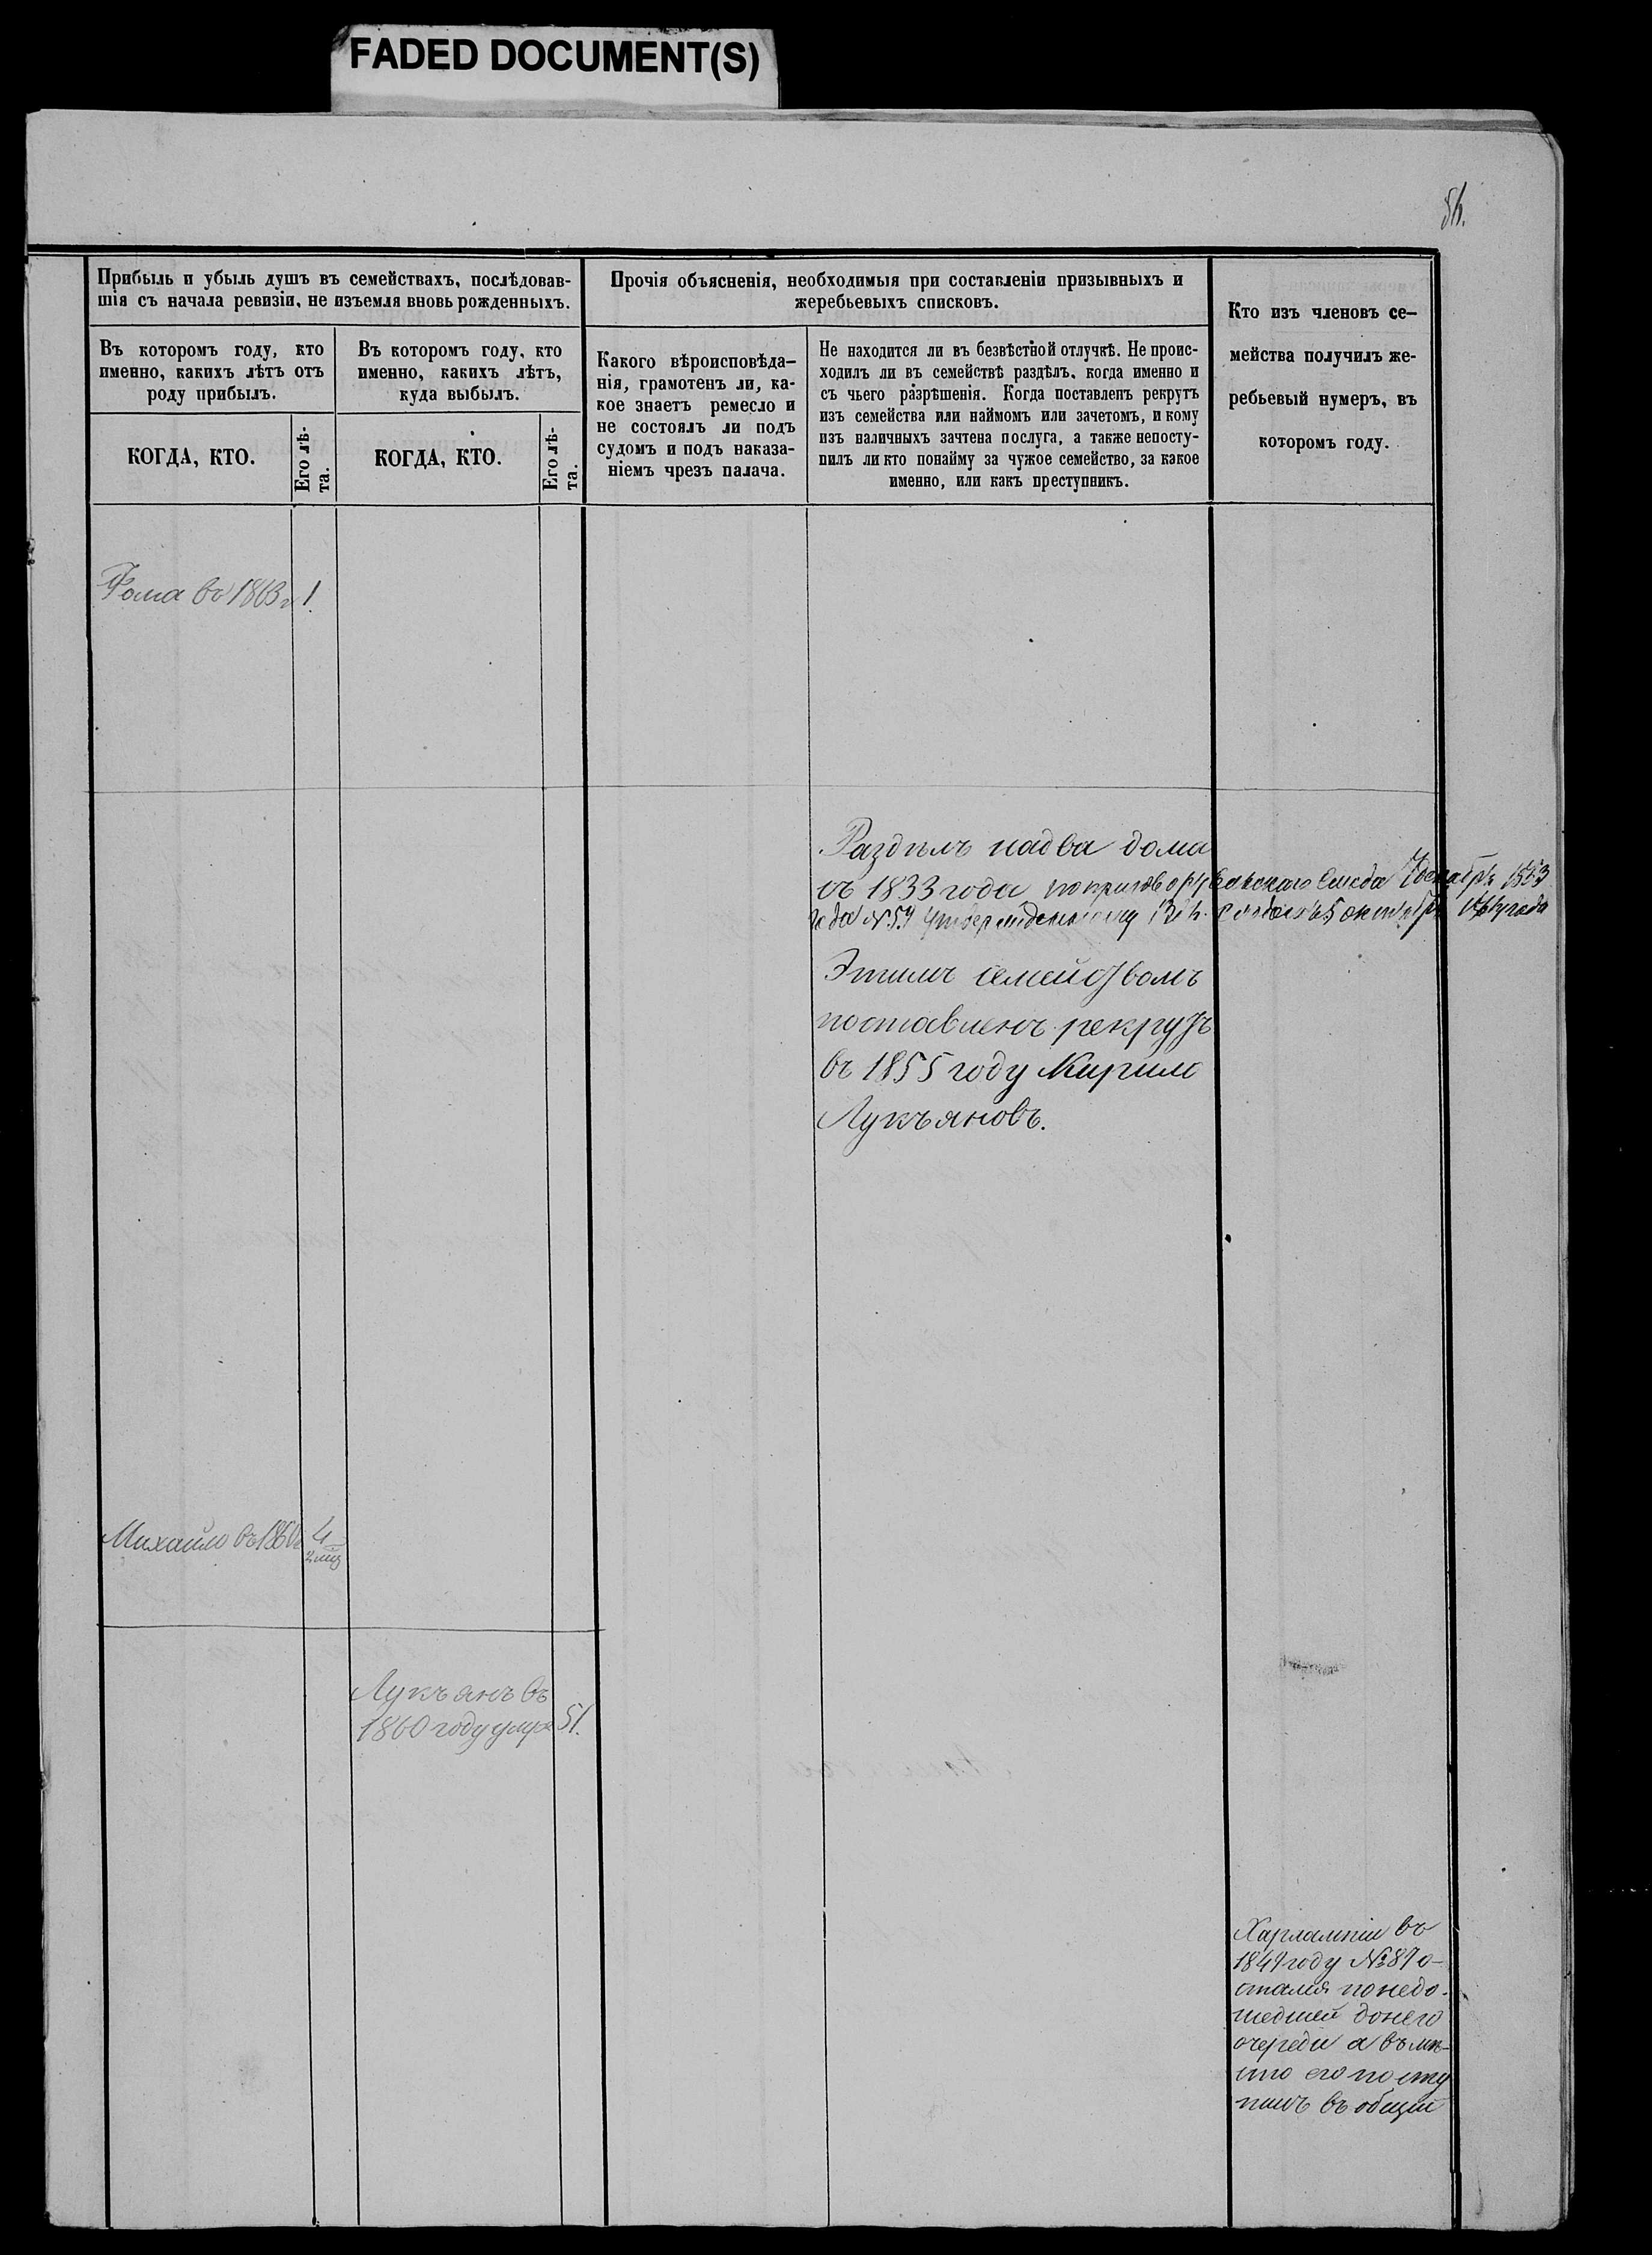 FADED DOCUMENT(S)
Прибыль и убыль душъ въ семействахъ, послѣдовав-
шія съ начала ревизіи, не изъемля вновь рожденныхъ.
Въ которомъ году, кто
именно, какихъ лѣтъ отъ
роду прибылъ.
КОГДА, КТО.
Его лѣ-
та.
Въ которомъ году, кто
именно, какихъ лѣтъ,
куда выбылъ.
КОГДА, КТО.
Его лѣ-
та.
Прочія объясненія, необходимыя при составленіи призывныхъ и
жеребьевыхъ списковъ.
Какого вѣроисповѣда-
нія, грамотенъ ли, ка-
кое знаетъ ремесло и
не состоялъ ли подъ
судомъ и подъ наказа-
ніемъ чрезъ палача.
Не находится ли въ безвѣстной отлучкѣ. Не проис-
ходилъ ли въ семействѣ раздѣлъ, когда именно и
съ чьего разрѣшенія. Когда поставленъ рекрутъ
изъ семейства или наймомъ или зачетомъ, и кому
изъ наличныхъ зачтена послуга, а также непосту-
пилъ ли кто понайму за чужое семейство, за какое
именно, или какъ преступникъ.
Кто изъ членовъ се-
мейства получилъ же-
ребьевый нумеръ, въ
которомъ году.
Фома въ 1863 г 1.
Раздѣлъ надва дома
съ 1833 года по приговору 1853
года № утвержденному 5 октября года
Этимъ семействомъ
поставленъ рекрутъ
въ 1855 году Кирило
Лукъяновъ.
Михайло въ 4
Лукъянъ въ
1860 году умеръ 51.
Харлампій въ
1847 году № 87 о-
стался понедо-
шедшей донего
очереди а вмѣ-
сто его посту
пилъ въ общій